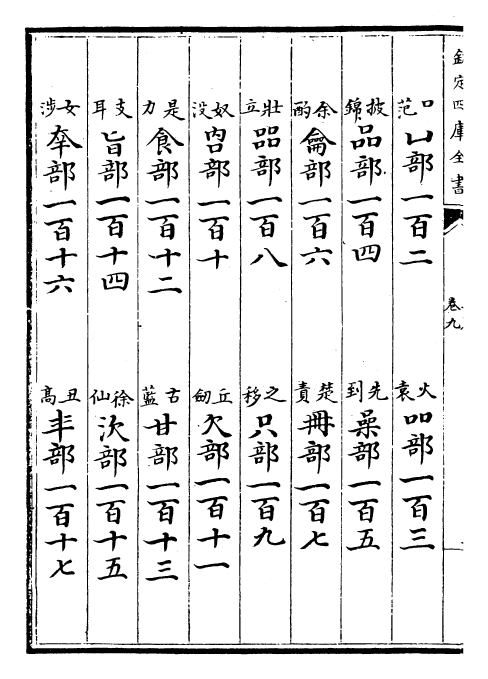 欽定四庫全書
卷九
口范凵部一百二　火袁吅部一百三
披錦品部一百四　先到喿部一百五
余酌龠部一百六　楚責冊部一百七
壯立㗊部一百八　之移只部一百九
奴没㕯部一百十　丘劒欠部一百十一
是力食部一百十二　古藍甘部一百十三
支耳旨部一百十四　徐仙㳄部一百十五
女涉㚔部一百十六　丑髙夲部一百十七